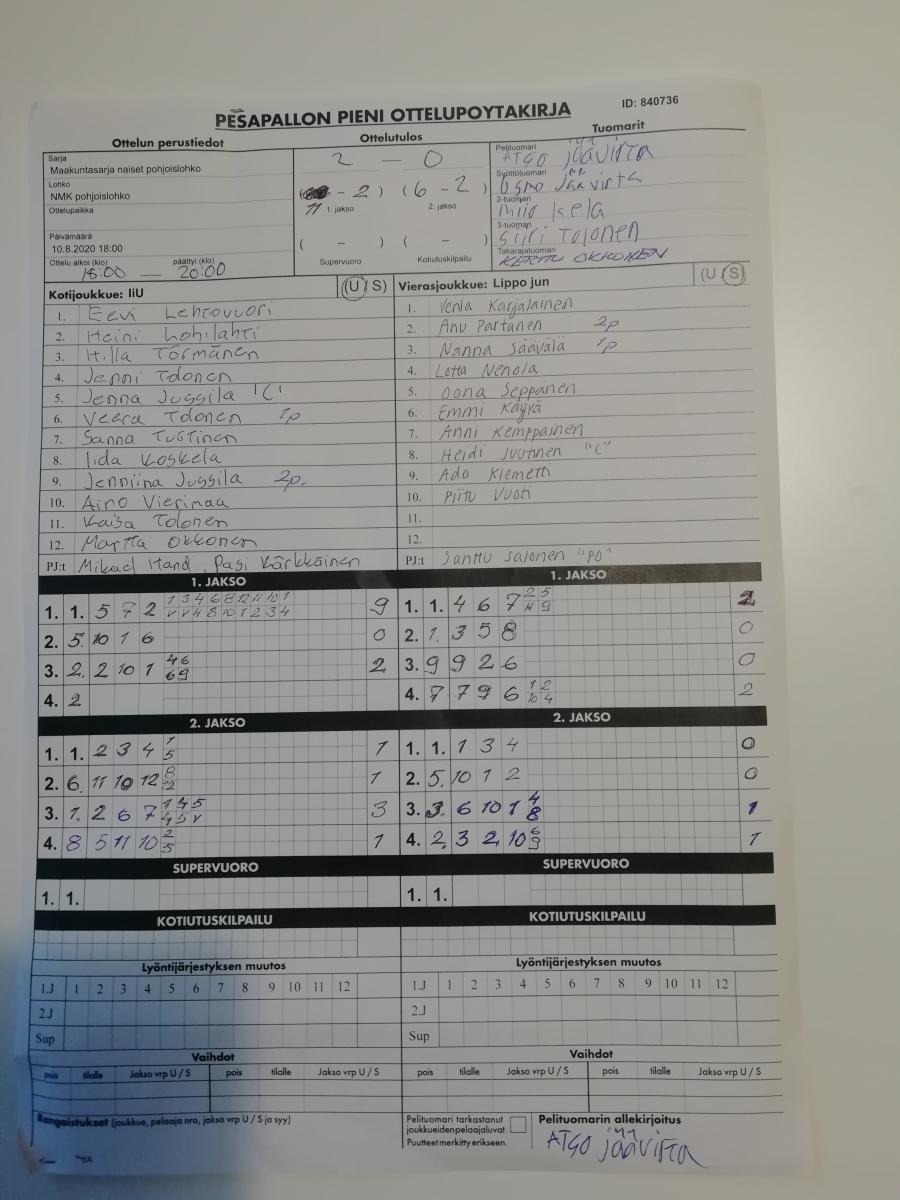 PESÄPALLON PIENI OTTELUPÖYTÄKIRJA
ID: 840736
Ottelun perustiedot
Ottelutulos
Tuomarit
Sarja
Maakuntasarja naiset pohjoislohko
Lohko
NMK pohjoislohko
Ottelupaikka
Päivämäärä
10.8.2020 18:00
Ottelu alkoi (klo) päättyi (klo)
18:00 — 20:00
2 — 0
( - 2 ) ( 6 - 2 )
11 1. jakso 2. jakso
( - ) ( - )
Supervuoro Kotiutuskilpailu
Pelituomari
ATSO Jäävirta
Syöttötuomari
Usmo Jäävirta
2-tuomari
Kela
3-tuomari
Siiri Tolonen
Takarajatuomari
KERTTU OKKONEN
Kotijoukkue: IiU (U S)
1. Eevi Lehtovuori
2. Heini Lohilahti
3. Hilla Törmänen
4. Jenni Tolonen
5. Jenna Jussila "C"
6. Veera Tolonen 1p
7. Sanna Tuttinen
8. Iida Koskela
9. Jenniina Jussila 2p.
10. Aino Vierimaa
11. Kaisa Tolonen
12. Martta Okkonen
PJ:t Mikael Itand, Pasi Kärkkäinen
Vierasjoukkue: Lippo jun (U S)
1. Venla Karjalainen
2. Anu Partanen 2p
3. Nanna Säävälä 1p
4. Lotta Nenola
5. Oona Seppänen
6. Emmi Käyrä
7. Anni Kemppainen
8. Heidi Juutinen "C"
9. Ada Klemetti
10. Piitu Vuoti
11.
12.
PJ:t Santtu Salonen "PO"
1. JAKSO
1. 1. 5 7 2 1 3 4 6 8 12 11 10 1 9
v v 4 8 10 1 2 3 4
2. 5. 10 1 6 0
3. 2. 2 10 1 4 6 2
6 9
4. 2
1. JAKSO
1. 1. 4 6 7 2 5 2
4 9
2. 1. 3 5 8 0
3. 9 9 2 6 0
4. 7 7 9 6 1 2 2
10 4
2. JAKSO
1. 1. 2 3 4 1 1
5
2. 6. 11 10 12 8 1
2
3. 1. 2 6 7 1 4 5 3
4 5 v
4. 8 5 11 10 2 1
5
2. JAKSO
1. 1. 1 3 4 0
2. 5. 10 1 2 0
3. 3. 6 10 1 4 1
8
4. 2. 3 2 10 6 1
9
SUPERVUORO
1. 1.
SUPERVUORO
1. 1.
KOTIUTUSKILPAILU
KOTIUTUSKILPAILU
Lyöntijärjestyksen muutos
1.J 1 2 3 4 5 6 7 8 9 10 11 12
2.J
Sup
Lyöntijärjestyksen muutos
1.J 1 2 3 4 5 6 7 8 9 10 11 12
2.J
Sup
Vaihdot
pois tilalle Jakso vrp U / S pois tilalle Jakso vrp U / S
Vaihdot
pois tilalle Jakso vrp U / S pois tilalle Jakso vrp U / S
Rangaistukset (joukkue, pelaaja nro, jakso vrp U / S ja syy)
Pelituomari tarkastanut
joukkueiden pelaajaluvat.
Puutteet merkitty erikseen.
Pelituomarin allekirjoitus
ATSO Jäävirta